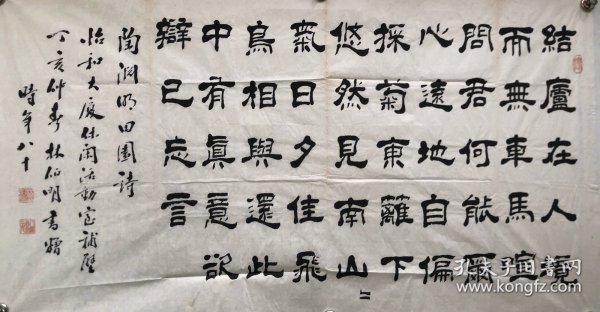 結廬在人境
而無車馬喧
問君何能爾
心遠地自偏
採菊東籬下
悠然見南山〻
氣日夕佳飛
鳥相與還此
中有真意欲
辯已忘言
陶淵明田園詩
怡和大廈休閑活動室補壁
丁亥仲春林伯明書贈
時年八十
孔夫子旧书网
www.kongfz.com